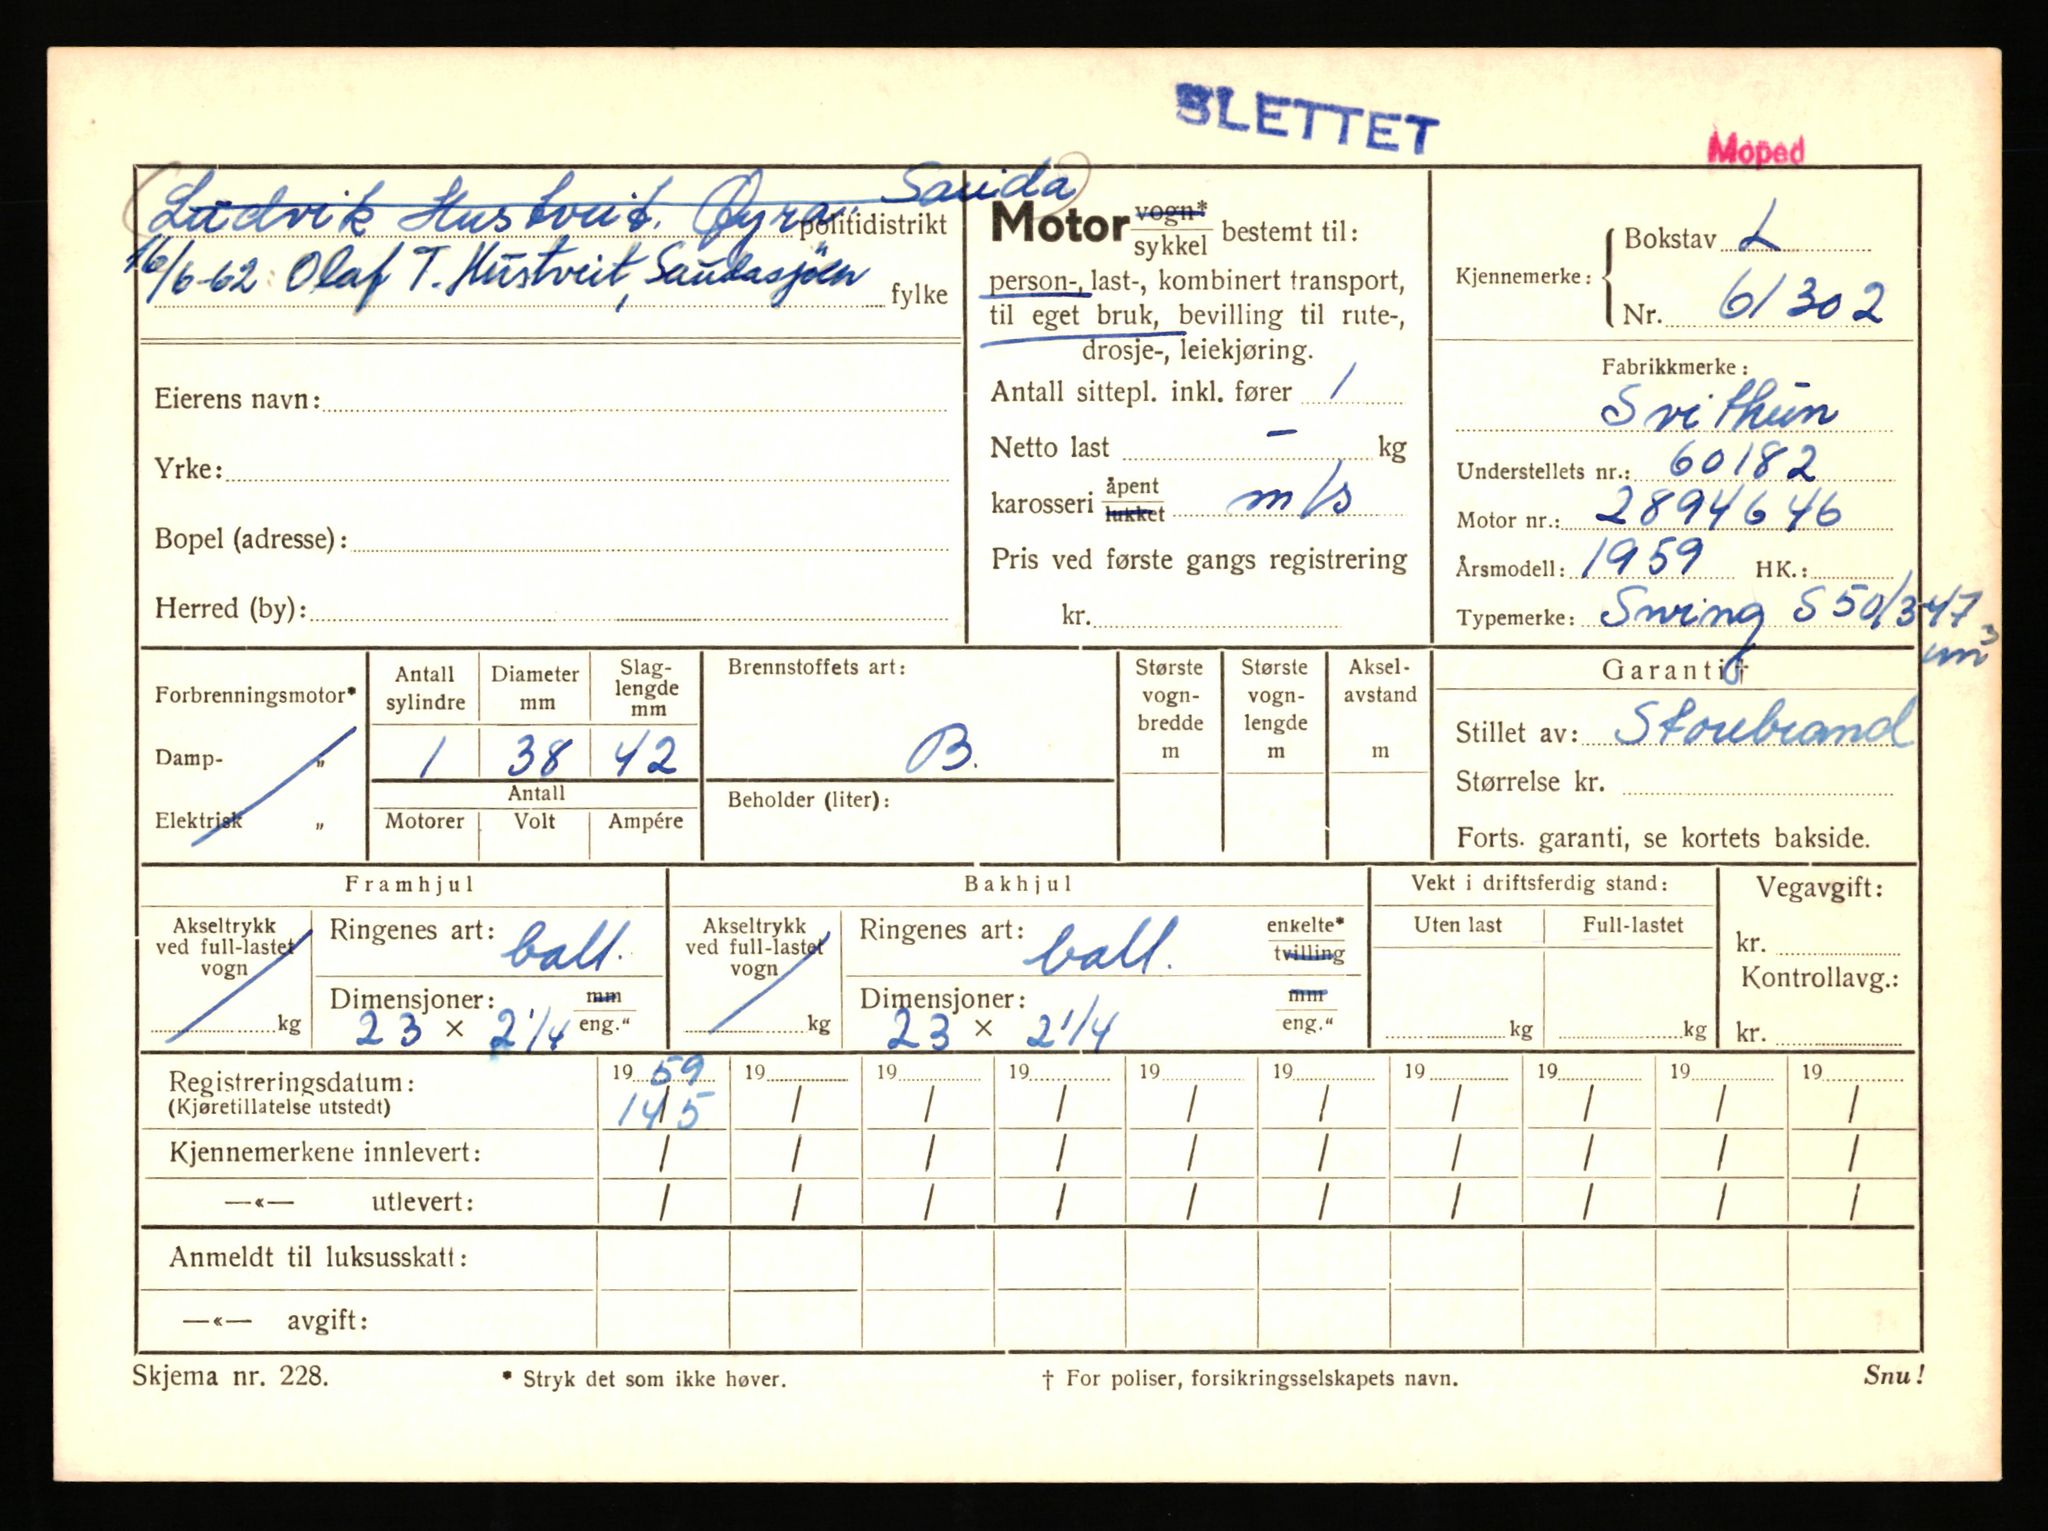 SLETTET
Moped
Ludvik Hustveit. Øyra Sauda
politidistrikt
16/6-62 Olaf T. Hustveit, Saudasjöen
fylke
Eierens navn:
Yrke:
Bopel (adresse):
Herred (by):
Motor vogn* sykkel bestemt til:
person-, last-, kombinert transport,
til eget bruk, bevilling til rute-,
drosje-, leiekjøring.
Antall sittepl. inkl. fører 1
Netto last – kg
karosseri åpent lukket m/s
Pris ved første gangs registrering
kr.
Kjennemerke: Bokstav L
Nr. 61302
Fabrikkmerke:
Svithun
Understellets nr.: 60182
Motor nr.: 2894646
Årsmodell: 1959 HK.:
Typemerke: Swing S 50/3 47
Forbrenningsmotor*
Damp- „
Elektrisk „
Antall sylindre
Diameter mm
Slaglengde mm
1 38 42
Antall
Motorer Volt Ampére
Brennstoffets art:
B.
Beholder (liter):
Største vogn-bredde m
Største vogn-lengde m
Aksel-avstand m
Garanti†
Stillet av: Storebrand
Størrelse kr.
Forts. garanti, se kortets bakside.
Framhjul
Akseltrykk ved full-lastet vogn kg
Ringenes art: ball.
Dimensjoner: mm eng."
23 × 2 1/4
Bakhjul
Akseltrykk ved full-lastet vogn kg
Ringenes art: ball. enkelte* tvilling
Dimensjoner: mm eng."
23 × 2 1/4
Vekt i driftsferdig stand:
Uten last Full-lastet
kg kg
Vegavgift:
kr.
Kontrollavg.:
kr.
Registreringsdatum: 19 59 19 19 19 19 19 19 19 19 19
(Kjøretillatelse utstedt) 14/5 / / / / / / / / /
Kjennemerkene innlevert: / / / / / / / / / /
—«— utlevert: / / / / / / / / / /
Anmeldt til luksusskatt:
—«— avgift:
Skjema nr. 228. * Stryk det som ikke høver. † For poliser, forsikringsselskapets navn. Snu!